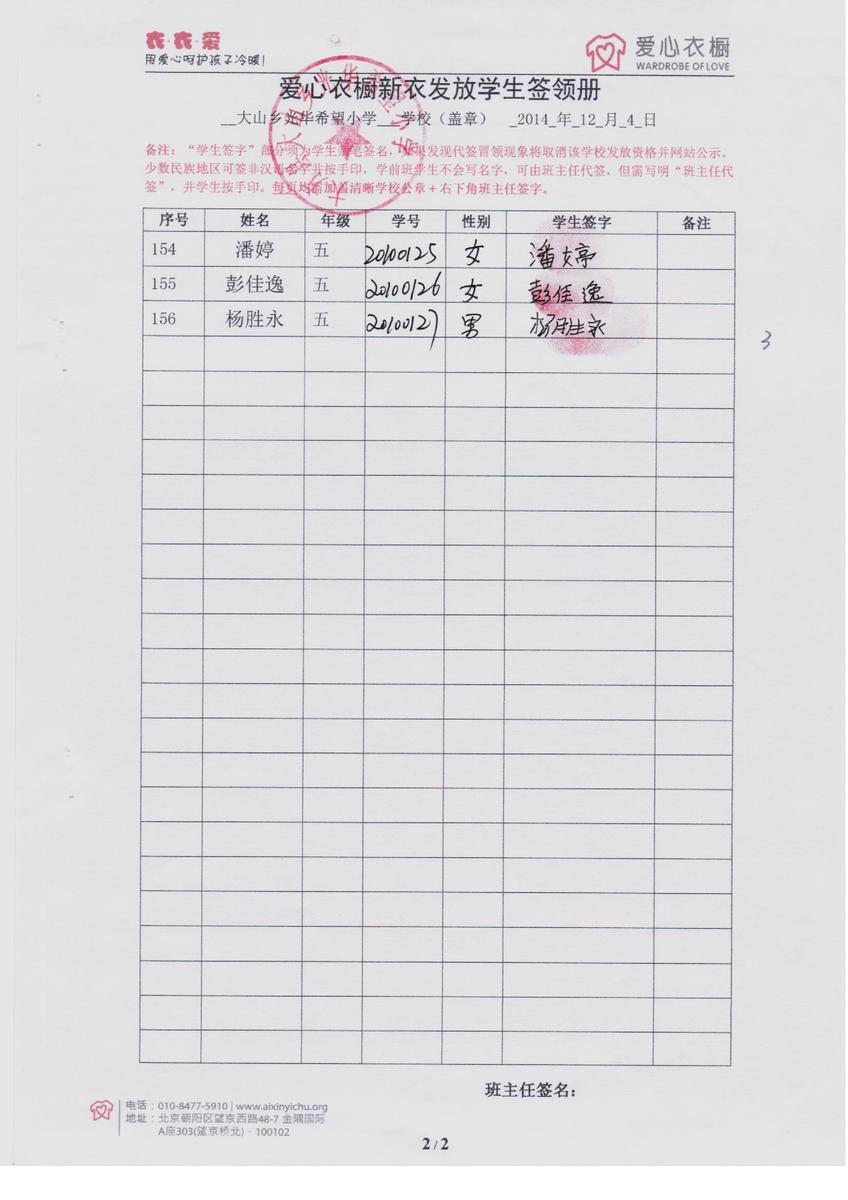 衣·衣·爱
用爱心呵护孩子冷暖!
爱心衣橱
WARDROBE OF LOVE
爱心衣橱新衣发放学生签领册
__大山乡光华希望小学___学校（盖章） _2014_年_12_月_4_日
备注：“学生签字”部分须为学生亲笔签名，如果发现代签冒领现象将取消该学校发放资格并网站公示。
少数民族地区可签非汉语名字并按手印，学前班学生不会写名字，可由班主任代签，但需写明“班主任代
签”，并学生按手印。每页均需加盖清晰学校公章+右下角班主任签字。
序号 姓名 年级 学号 性别 学生签字 备注
154 潘婷 五 20100125 女 潘婷
155 彭佳逸 五 20100126 女 彭佳逸
156 杨胜永 五 20100127 男 杨胜永
3
班主任签名：
电话：010-8477-5910 | www.aixinyichu.org
地址：北京朝阳区望京西路48-7 金隅国际
A座303(望京桥北)·100102
2 / 2